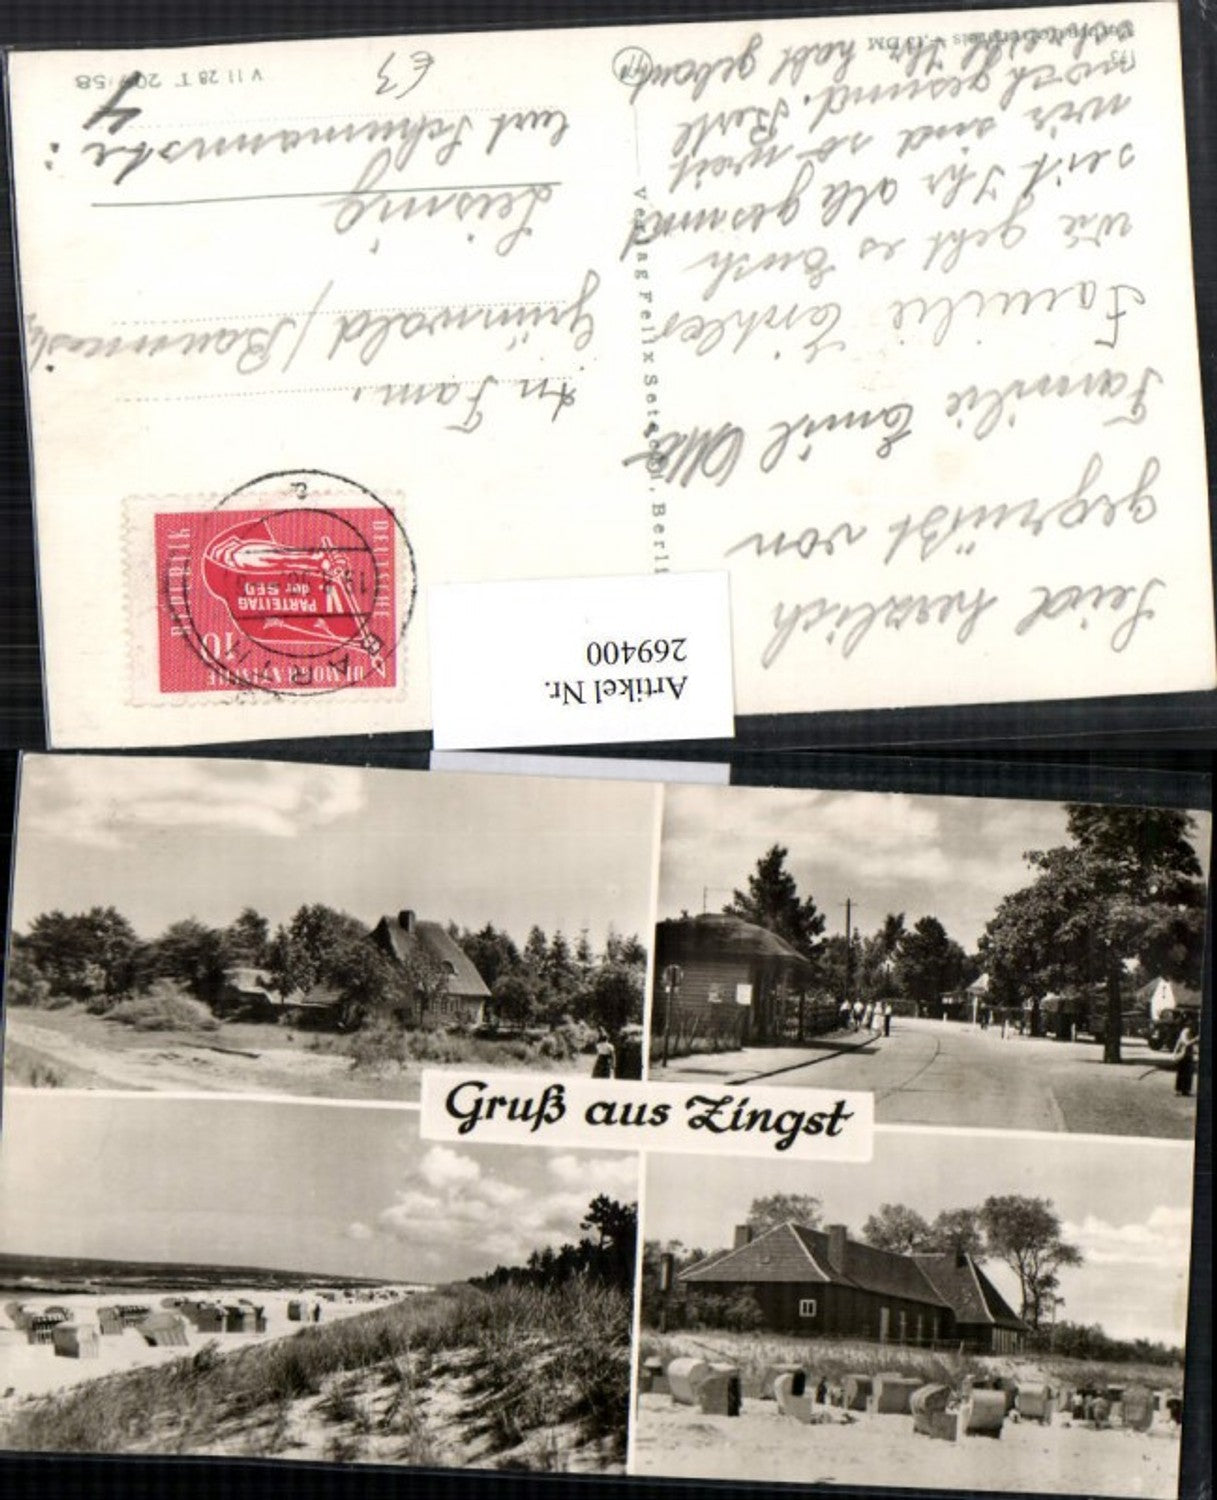 Seid herzlich
gegrüßt von
Familie Emil Otto
Familie
wie geht es Euch
seit Ihr alle gesund
wir sind so weit
noch gesund.
schreibt Ihr habt gebaut
Verlag Felix Setecki, Berlin
An Fam.
Grünwald /
Leisnig
Curt Schumannstr:
4
€3
V 11 28 T 58
DEUTSCHE
DEMOKRATISCHE
REPUBLIK
PARTEITAG
der SED
10
Artikel Nr.
269400
Gruß aus Zingst